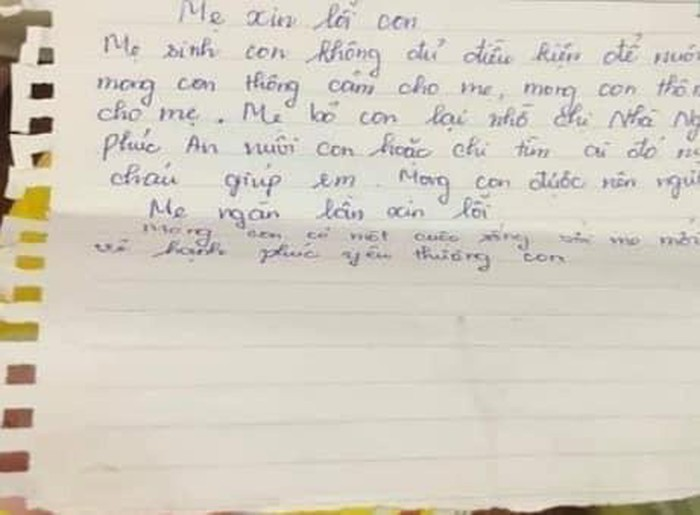 Mẹ xin lỗi con
Mẹ sinh con không đủ điều kiện để nuôi
mong con thông cảm cho mẹ, mong con thôn
cho mẹ. Mẹ bỏ con lại nhờ chị Nhà Ng
Phúc An nuôi con hoặc chị tìm ai đó nu
cháu giúp em. Mong con được nên ngư
Mẹ ngàn lần xin lỗi
Mong con có một cuộc sống với mẹ mới
về hạnh phúc yêu thương con